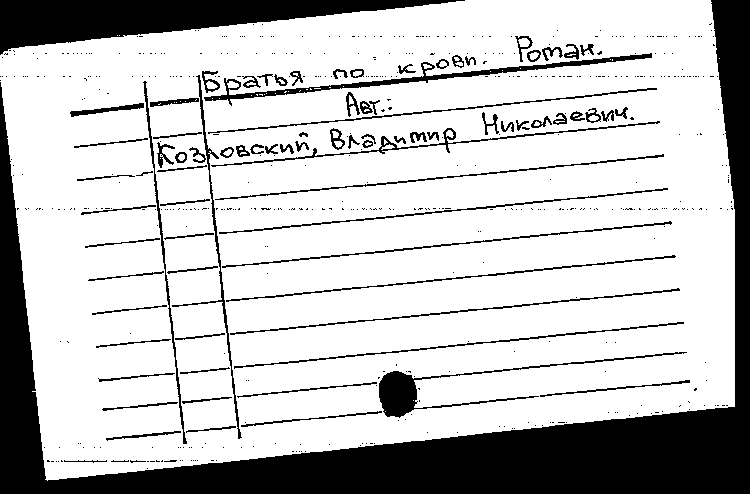 Братья по крови. Роман.
Авт.:
Козловский, Владимир Николаевич.